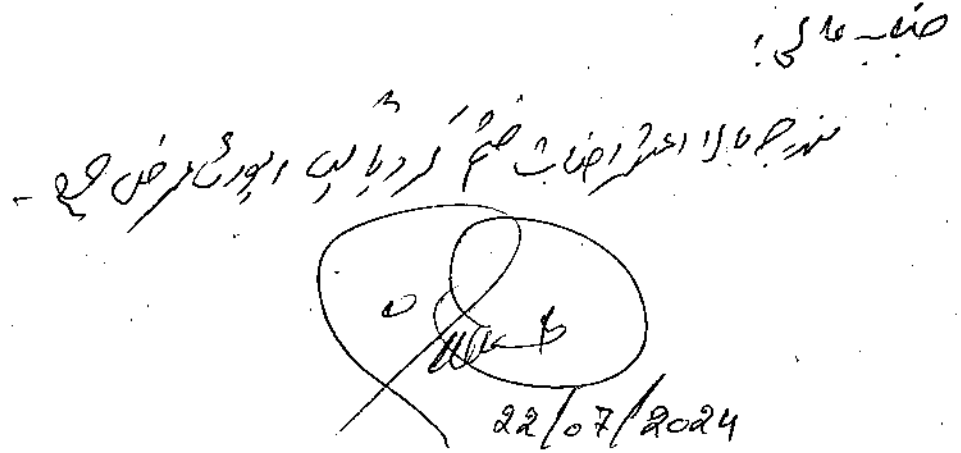 جناب عالی!
مندرجہ بالا اعتراضات ختم کر دیا گیا رپورٹ عرض ہے۔
22/07/2024